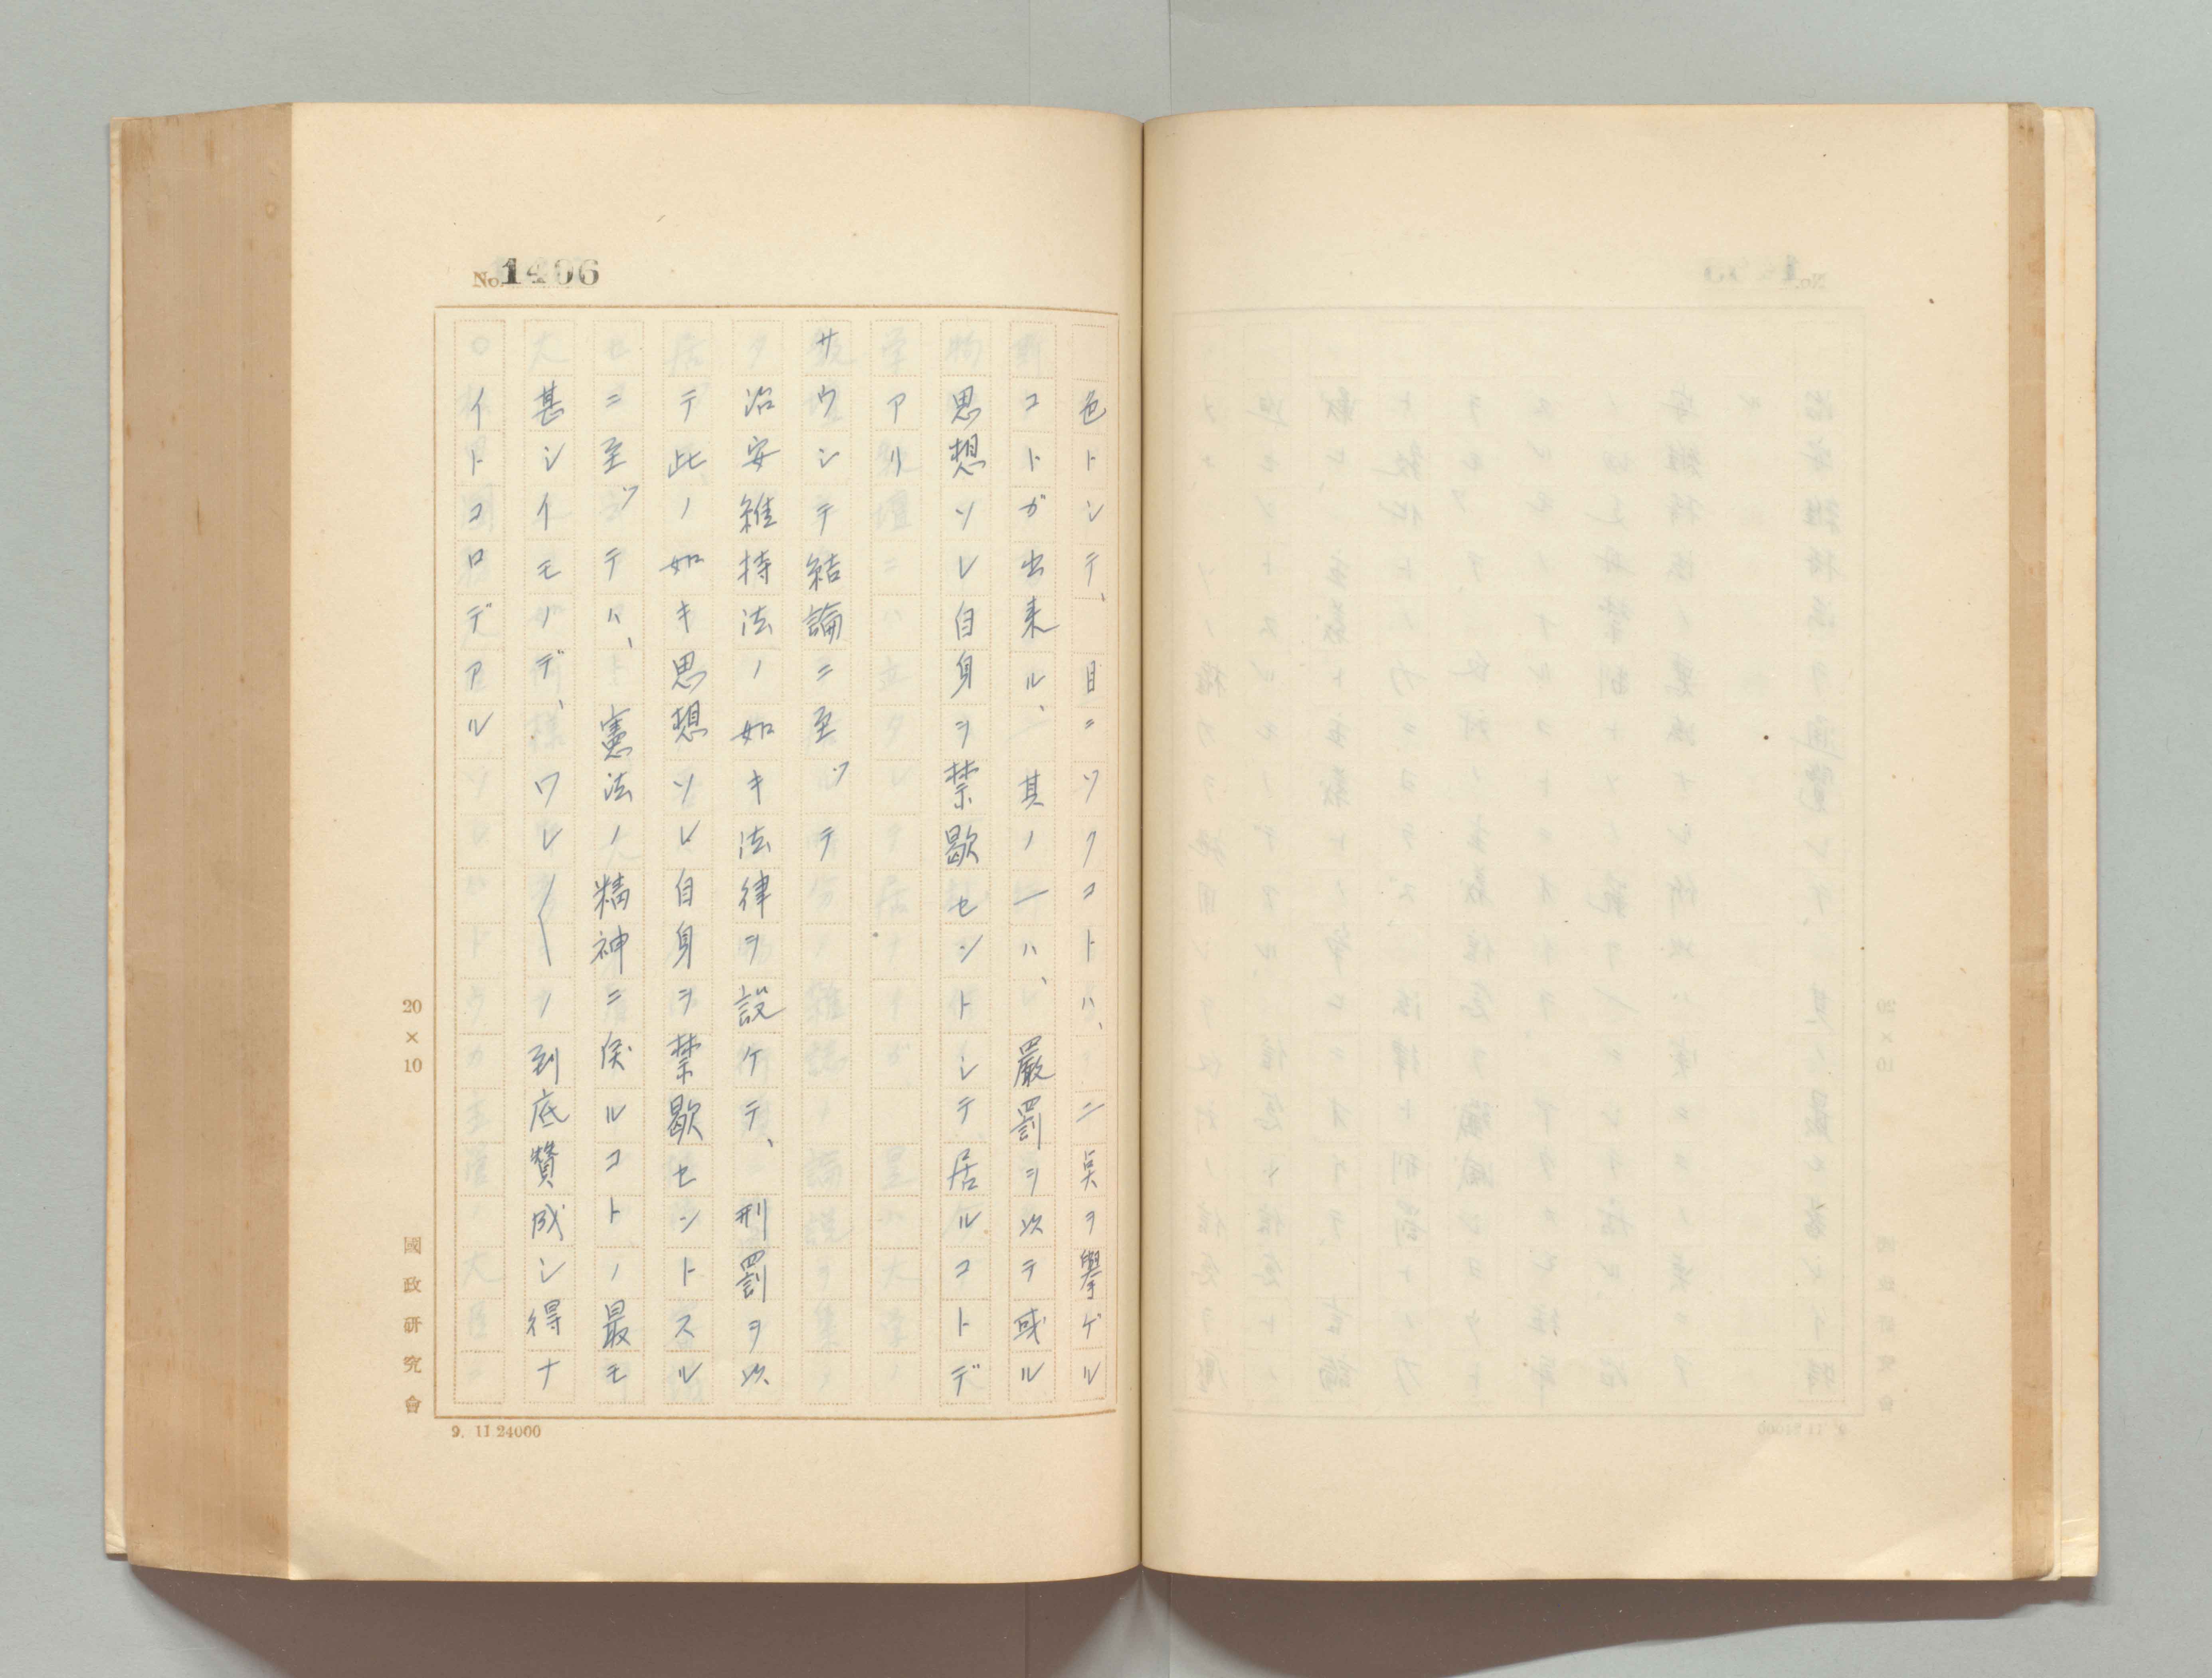 No. 1406
色トシテ、目ニツクコトハ、二点ヲ擧ゲル
コトガ出来ル、其ノ一ハ、嚴罰ヲ以テ或ル
思想ソレ自身ヲ禁歇セントシテ居ルコトデ
アリ
サウシテ結論ニ至ツテ
治安維持法ノ如キ法律ヲ設ケテ、刑罰ヲ以
テ此ノ如キ思想ソレ自身ヲ禁歇セントスル
ニ至ツテハ、憲法ノ精神ニ戻ルコトノ最モ
甚シイモノデ、ワレ〳〵ノ到底賛成シ得ナ
イトコロデアル
20×10
國政研究會
9. 11 24000